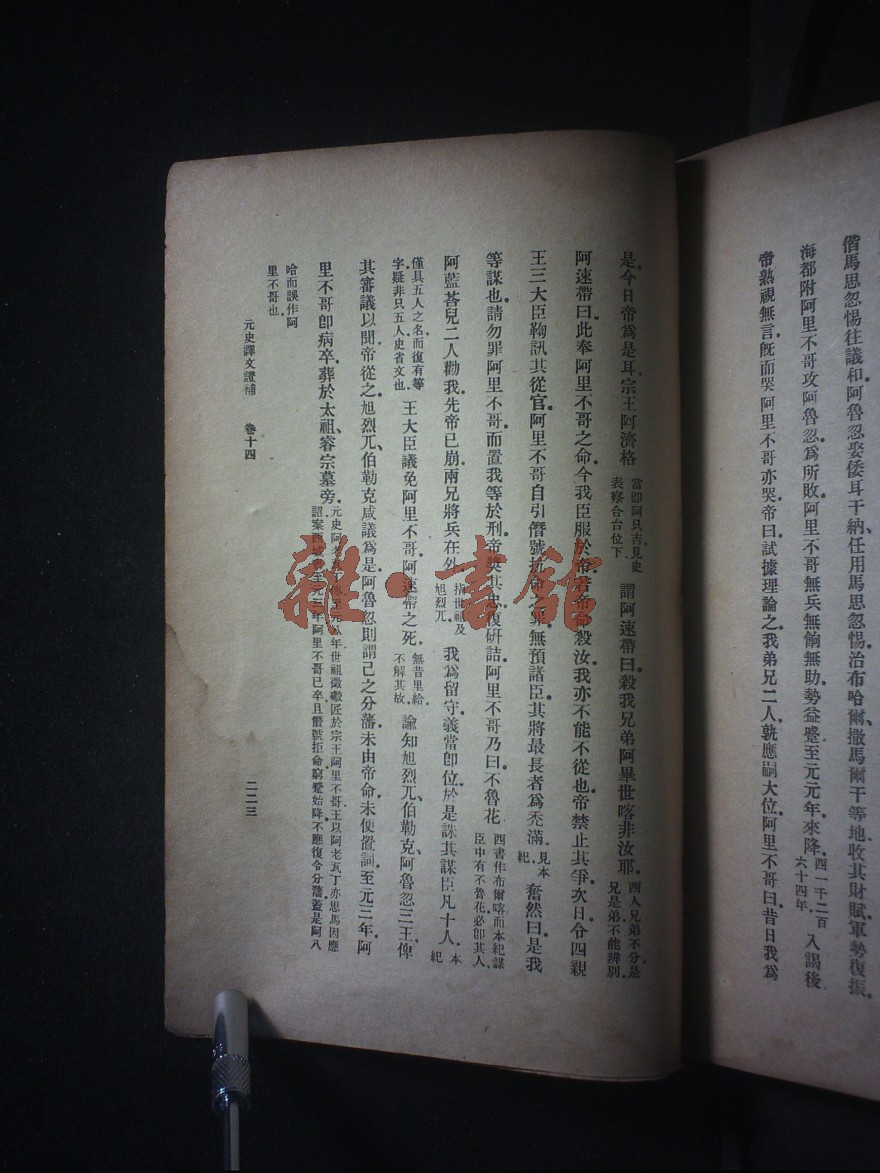 偕馬思忽惕往議和阿魯忽娶倭耳干納任用馬思忽惕治布哈爾、撒馬爾干等地收其財賦軍勢復振。
海都附阿里不哥攻阿魯忽爲所敗。阿里不哥無兵無餉無助勢益蹙至元元年來降。西一千二百六十四年。入謁後
帝熟視無言。既而哭阿里不哥亦哭。帝曰試據理論之我弟兄二人孰應嗣大位阿里不哥曰昔日我爲
是。今日帝爲是耳。宗王阿濟格當卽阿只吉見史表察合台位下。謂阿速帶曰殺我兄弟阿畢世喀非汝耶。西人兄弟不分是兄是弟不能辨別。
阿速帶曰此奉阿里不哥之命今我臣服於帝若帝命殺汝我亦不能不從也。帝禁止其爭。次日令四親
王三大臣鞫訊其從官。阿里不哥自引僭號抗命之罪。無預諸臣。其將最長者爲禿滿。見本紀。奮然曰是我
等謀也。請勿罪阿里不哥。而置我等於刑。帝獎其忠。復研詰阿里不哥乃曰不魯花西書作布爾喀而本紀謀臣中有不魯花必卽其人。
阿藍荅兒二人勸我。先帝已崩兩兄將兵在外。指世祖及旭烈兀。我爲留守義當卽位於是誅其謀臣凡十人。本紀
僅具五人之名。而復有等字疑非只五人史省文也。王大臣議免阿里不哥阿速帶之死。無昔里給不解其故。諭知旭烈兀、伯勒克、阿魯忽三王俾
其審議以聞帝從之。旭烈兀、伯勒克咸議爲是。阿魯忽則謂己之分藩未由帝命未便置詞。至元三年阿
里不哥卽病卒。葬於太祖、睿宗墓旁。元史阿老瓦丁傳至元八年世祖徵礮匠於宗王阿里不哥王以阿老瓦丁亦思馬因應詔案西域史至元三年阿里不哥已卒且僭號拒命窮蹙始降。不應復令分藩。蓋是阿八
哈而誤作阿里不哥也。
元史譯文證補 卷十四
二二三
雜·書館